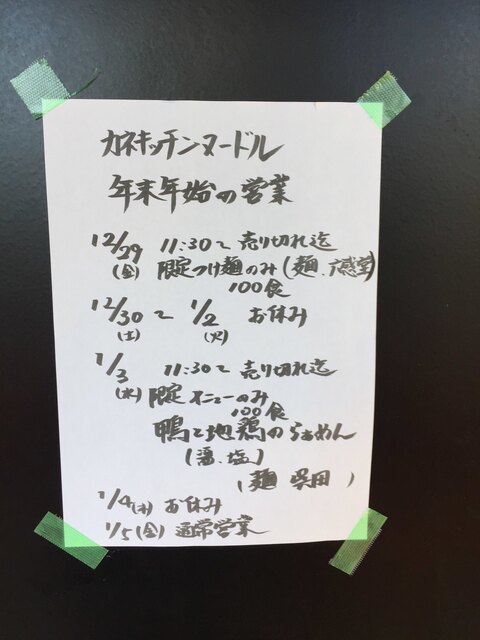 カネキッチンヌードル
年末年始の営業
12/29 11:30〜売り切れ迄
(金) 限定つけ麺のみ(麺、感室)
100食
12/30〜1/2 お休み
(土) (火)
1/3 11:30〜売り切れ迄
(水) 限定メニューのみ
100食
鴨と地鶏のらぁめん
(醤、塩)
(麺 呉田)
1/4(木) お休み
1/5(金) 通常営業